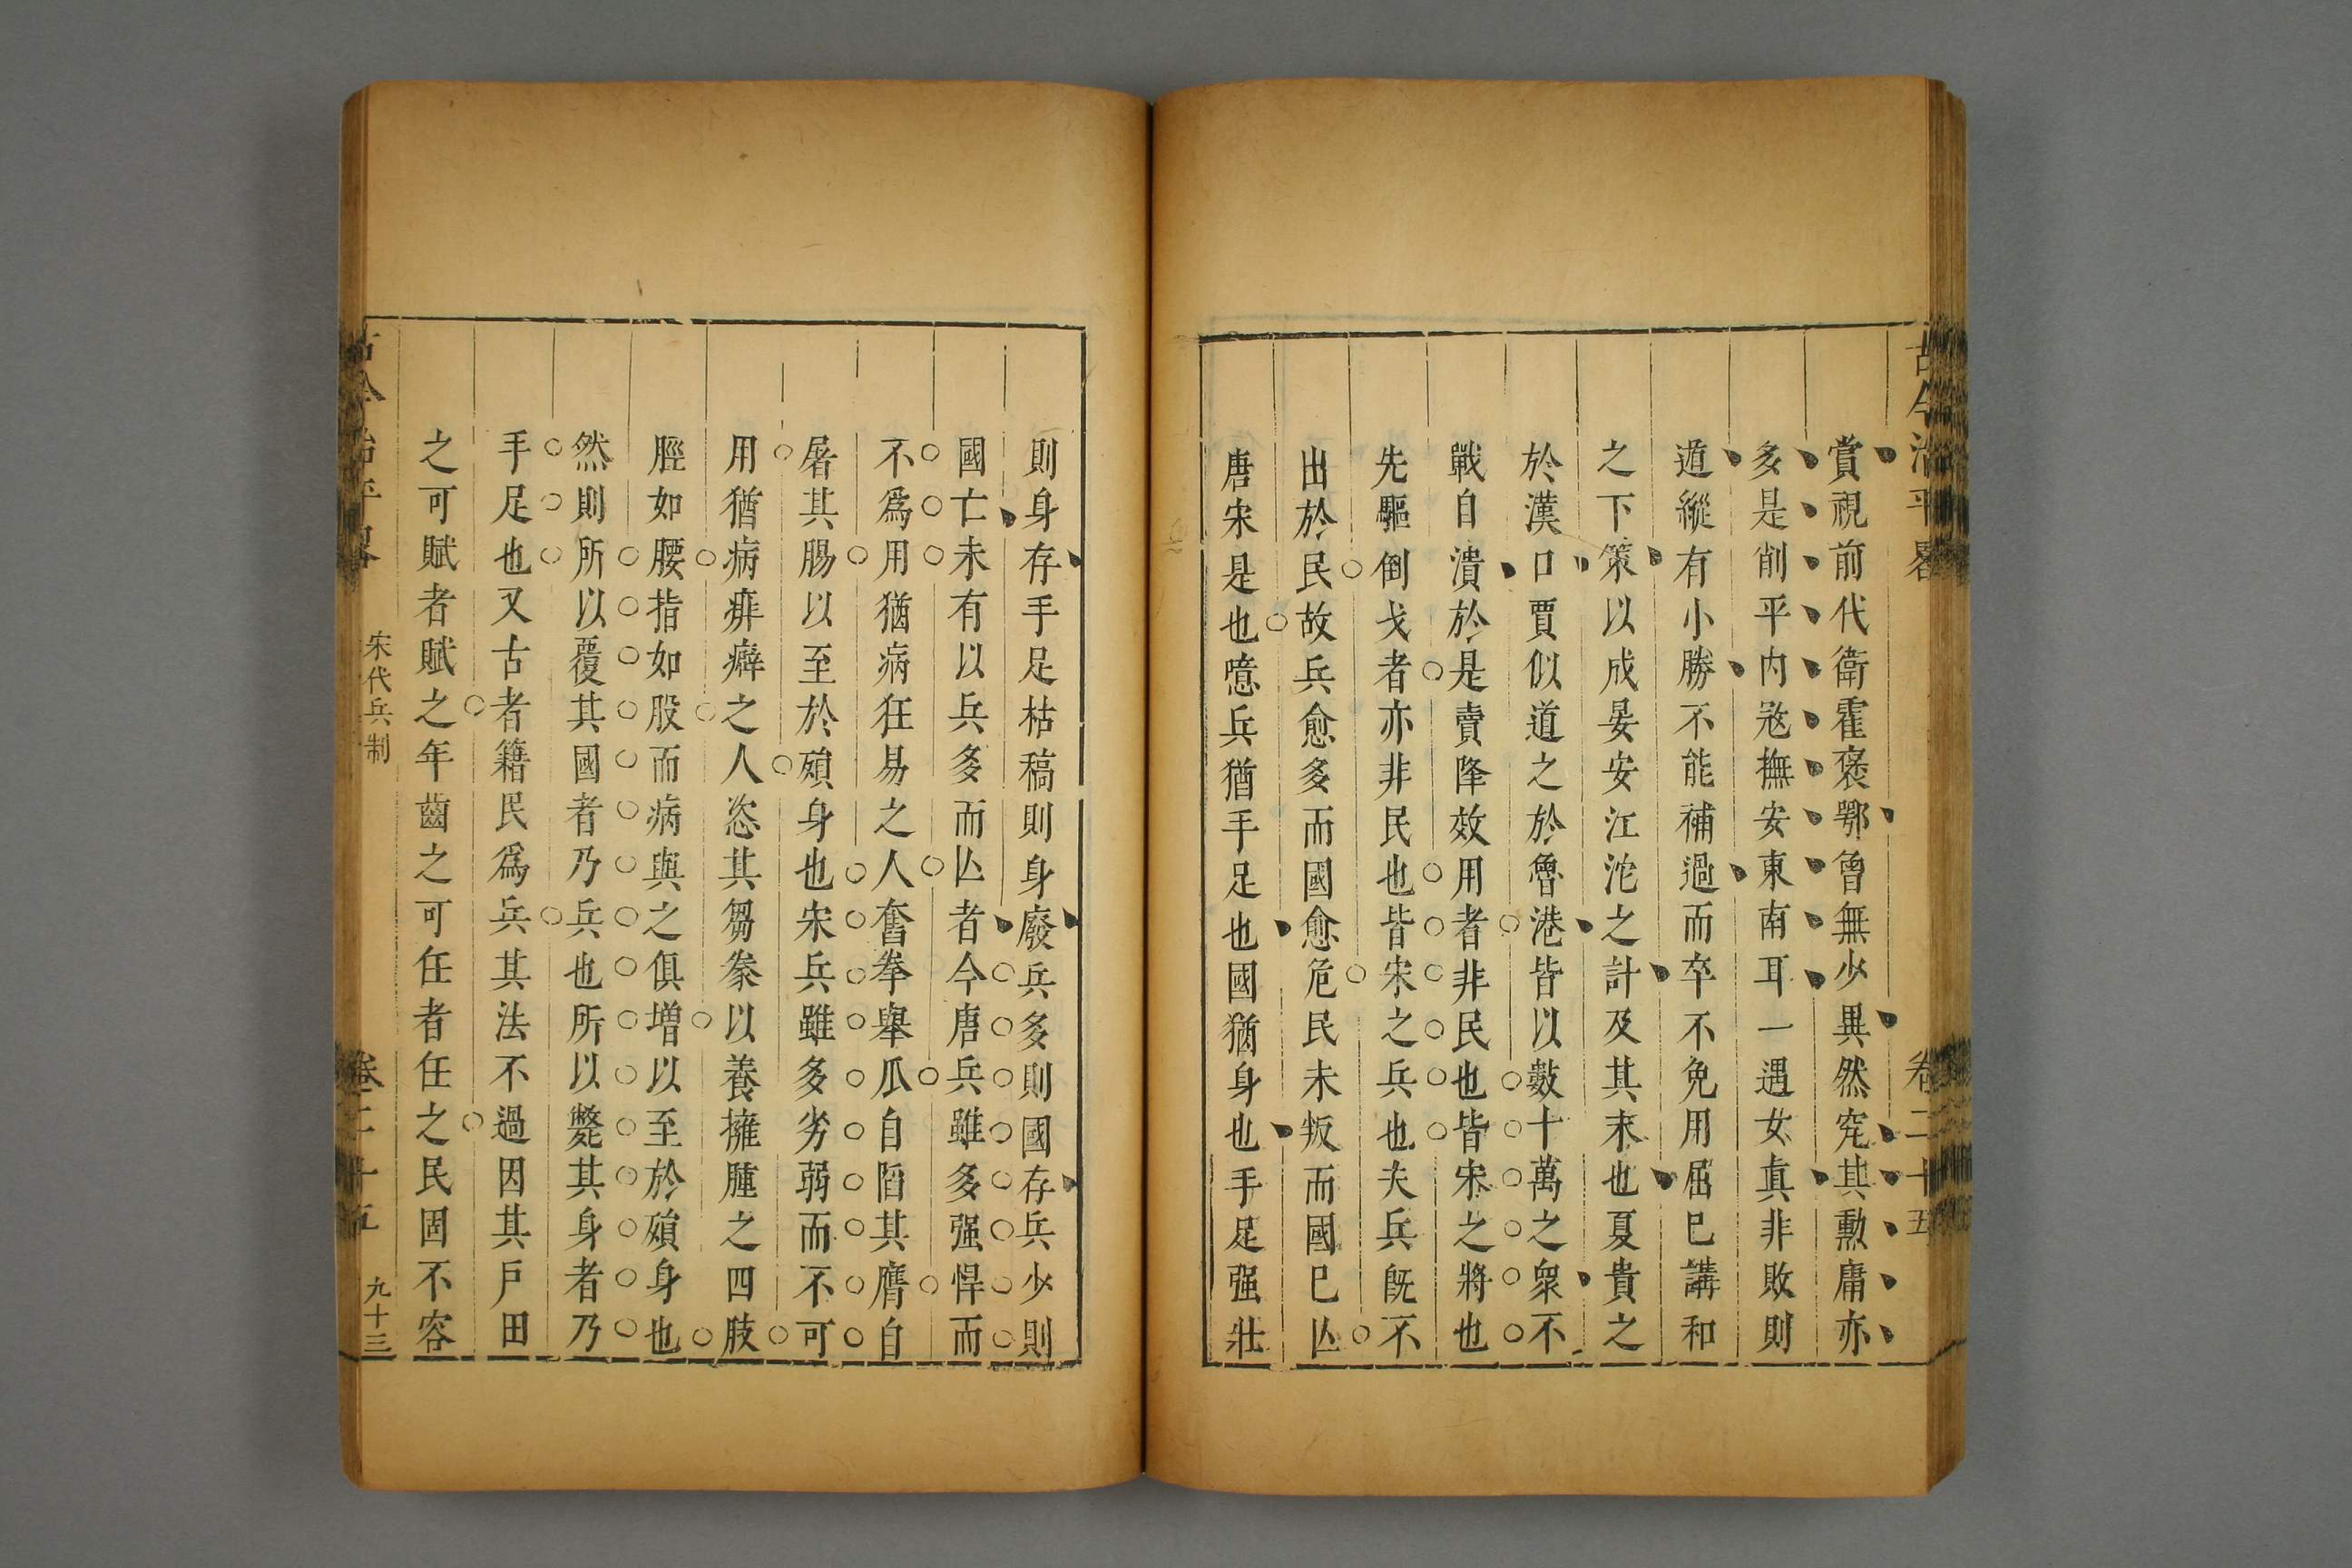 古今治平畧 卷二十五
賞視前代衛霍褒鄂曾無少異然究其勲庸亦
多是削平内冦撫安東南耳一遇女真非敗則
遁縱有小勝不能補過而卒不免用屈巳講和
之下策以成晏安江沱之計及其末也夏貴之
於漢口賈似道之於魯港皆以數十萬之衆不
戰自潰於是賣降效用者非民也皆宋之將也
先驅倒戈者亦非民也皆宋之兵也夫兵既不
出於民故兵愈多而國愈危民未叛而國巳亾
唐宋是也噫兵猶手足也國猶身也手足强壯
則身存手足枯稿則身廢兵多則國存兵少則
國亡未有以兵多而亾者今唐兵雖多强悍而
不爲用猶病狂易之人奮拳舉爪自䧟其膺自
屠其腸以至於殞身也宋兵雖多劣弱而不可
用猶病痱癖之人恣其芻豢以養擁腫之四肢
脛如腰指如股而病與之俱增以至於殞身也
然則所以覆其國者乃兵也所以斃其身者乃
手足也又古者籍民爲兵其法不過因其戸田
之可賦者賦之年齒之可任者任之民固不容
古今治平畧 宋代兵制 卷二十五 九十三